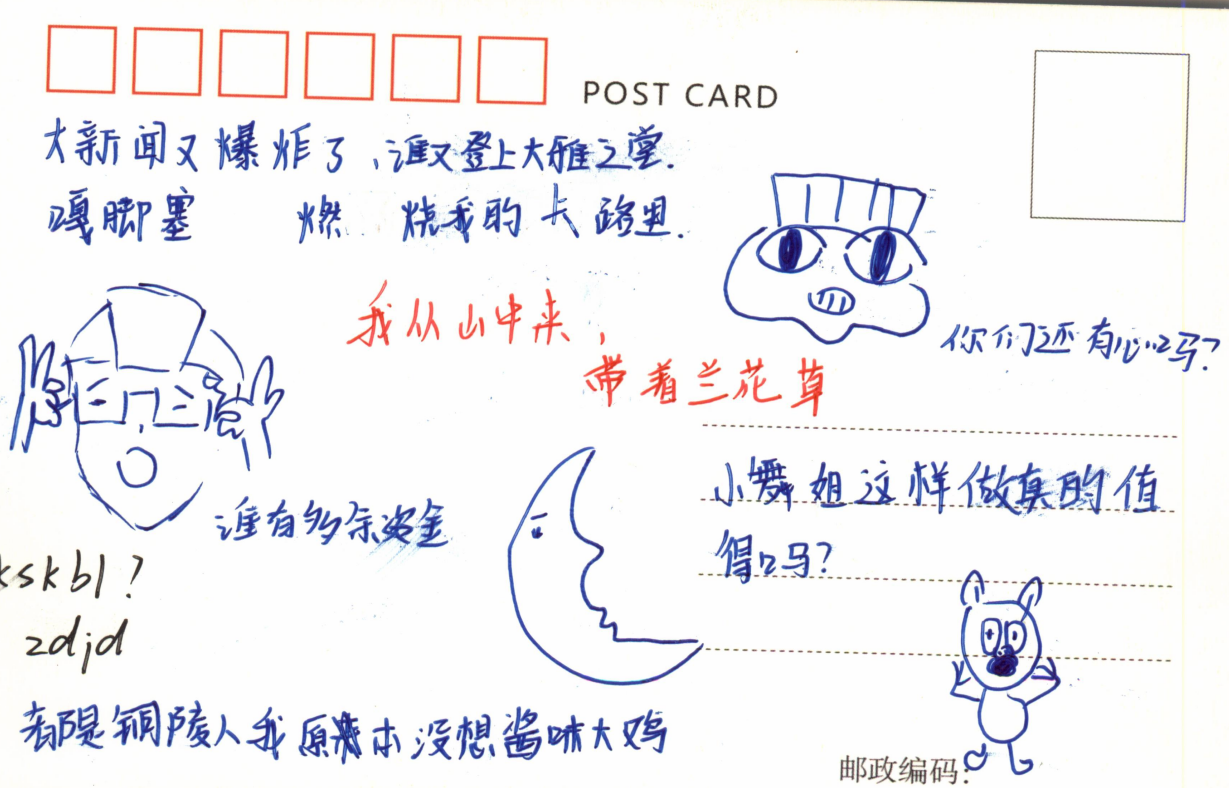 POST CARD
大新闻又爆炸了,谁又登上大雅之堂.
嘎脚塞 燃 烧我的卡路里.
我从山中来,
带着兰花草
你们还有心吗?
谁有多余资金
小舞姐这样做真的值
得吗?
kskbl?
zdjd
都是铜陵人我原本没想酱味大鸡
邮政编码: